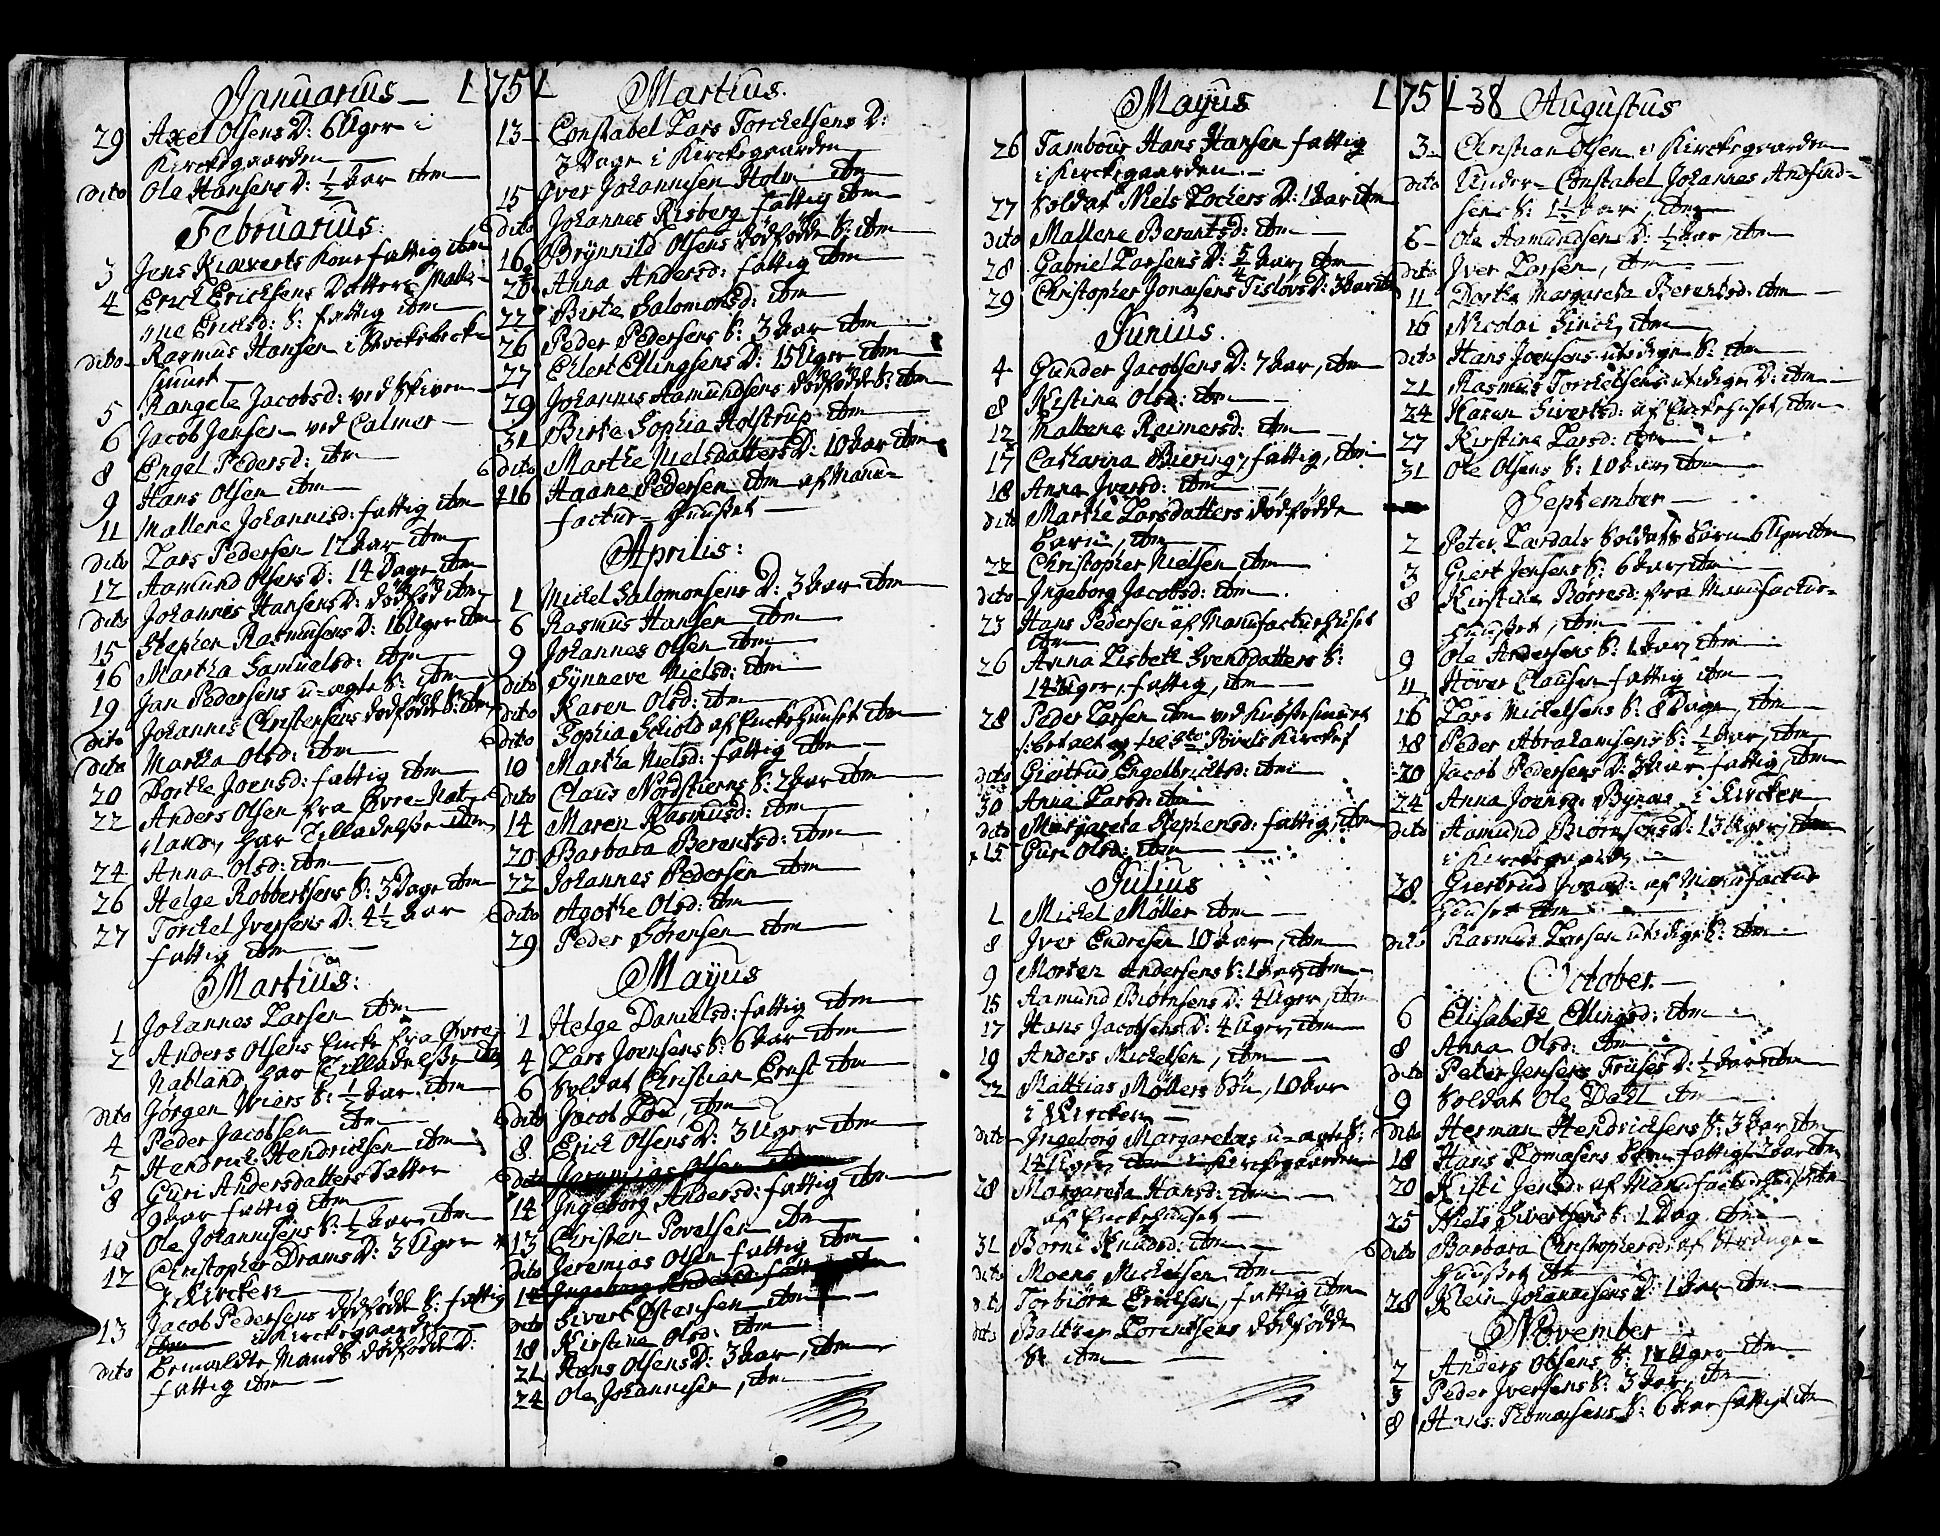 Januarius 1751
29 Axel Olsens D: 6 Uger i
Kirckegaarden
dito Ole Hansens D: ½ Aar ibm
Februarius:
3 Jens Kieverts Kone fattig ibm
4 Erick Ericksens Datters Malle-
ne Ericksd: S: fattig ibm
dito Rasmus Hansen i
Huuset
5 Rangele Jacobsd: ved Skiven
6 Jacob Jensen ved Calmer
8 Engel Pedersd: ibm
9 Hans Olsen ibm
11 Mallene Johannisd: fattig ibm
dito Lars Pedersen 12 Aar ibm
12 Aamund Olsens D: 14 Dage ibm
dito Johannes Hansens D: dödföd ibm
15 Stephen Rasmusens D: 16 Uger ibm
16 Martha Samuelsd: ibm
19 Jan Pedersens u-ægte S: ibm
dito Johannes Christensens dödfödde S: ibm
dito Martha Olsd: ibm
20 Dorthe Joensd: fattig ibm
22 Anders Olsen fra Øvre-Nat-
land, har Tilladelsse ibm
24 Anna Olsd: ibm
26 Helge Robbertsens S: 3 Dage ibm
27 Torckel Iversens D: 4½ Aar
fattig ibm
Martius:
1 Johannes Larsen ibm
2 Anders Olsens Encke fra Øvre
Natland har Tilladelsse ibm
dito Jörgen Wiers S: ½ Aar ibm
4 Peder Jacobsen ibm
5 Hendrick Hendricksen ibm
8 Guri Andersdatters Datter
9 Aar fattig ibm
10 Ole Johannisens S: ½ Aar, ibm
12 Christopher Drams D: 3 Uger
i Kircken
13 Jacob Pedersens dödfödde S: fattig
ibm i Kirckegaarden
dito Bemældte Mands dödfödde D:
fattig ibm
Martius.
13 Constabel Lars Torckelsens D:
3 Dage i Kirckegaarden
15 Iver Johannisen Holm ibm
dito Johannes Risberg fattig ibm
16 Brynnild Olsens dödfödde S: ibm
20 Anna Andersd: fattig ibm
22 Birte Salomonsd: ibm
26 Peder Pedersens S: 3 Aar ibm
27 Ehlert Ellingsens D: 15 Uger ibm
29 Johannes Aamundsens dödfödde S: ibm
31 Birte Sophia Holstrup ibm
dito Marthe Nielsdatters D: 10 Aar ibm
16 Haane Pedersen ibm af Manu-
factur-Huuset
Aprilis:
1 Michel Salomonsens D: 3 Aar ibm
6 Rasmus Hansen ibm
9 Johannes Olsen ibm
dito Synneve Nielsd: ibm
dito Karen Olsd: ibm
dito Sophia Schiold af Enckehuuset ibm
10 Martha Nielsd: fattig ibm
dito Claus Nordstierns S: 2 Aar ibm
14 Maren Rasmusd: ibm
20 Barbara Berentsd: ibm
22 Johannes Pedersen ibm
dito Agothe Olsd: ibm
29 Peder Sörensen ibm
Mayus
1 Helge Danielsd: fattig ibm
4 Lars Joensens S: 6 Aar ibm
6 Soldat Christian Ernst ibm
dito Jacob Lou, ibm
8 Erick Olsens D: 3 Uger ibm
dito Jeremias Olsen ibm
14 Ingeborg Andersd: fattig ibm
13 Christen Povelsen ibm
dito Jeremias Olsen fattig ibm
14 Ingeborg Andersd: fatt ibm
dito Sivert Østensen ibm
18 Kirstina Olsd: ibm
21 Hans Olsens D: 3 Aar, ibm
24 Ole Johannisen, ibm
Mayus 1751
26 Tambour Hans Hansen fattig
i Kirckegaarden
27 Soldat Niels Lockers D: 1 Aar ibm
dito Mallene Berentsd: ibm
28 Gabriel Larsens D: 5/4 Aar, ibm
29 Christopher Jonasens Tislövs D: 3 Aar ibm
Junius.
4 Gunder Jacobsens D: 7 Aar, ibm
8 Kistine Olsd: ibm
12 Mallene Reimersd: ibm
17 Catharina Buering, fattig, ibm
18 Anna Iversd: ibm
dito Marthe Larsdatters dödfödde
barn, ibm
22 Christopher Nielsen ibm
dito Ingeborg Jacobsd: ibm
23 Hans Pedersen af Manufacturhuset
ibm
26 Anna Lisbeth Svendsdatters S:
14 Uger, fattig, ibm
28 Peder Larsen ibm ved
betalt og til Sto Povels Kircke
dito Giertrud Engelbrictsd: ibm
30 Anna Larsd: ibm
dito Margareta Stephensd: fattig ibm
15 Guri Olsd: ibm
Julius
1 Michel Möller ibm
8 Iver Endresen 10 Aar, ibm
9 Morten Andersens S: 1 Aar, ibm
15 Aamund Biörnsens D: 4 Uger, ibm
17 Hans Jacobsens D: 4 Uger, ibm
19 Anders Michelsen, ibm
22 Matthias Möllers Sön, 10 Aar
i Kircken
dito Ingeborg Margaretæs u-ægte S:
14 Uger, ibm i Kirckegaarden
28 Margareta Hansd: ibm
af Enckehuuset
31 Börni Knudsd: ibm
dito Moens Michelsen ibm
dito Torbiörn Ericksen, fattig ibm
dito Baltzer Lorentsens dödfödde
S: ibm
138 Augustus
3 Christian Olsen i Kirckegaarden
dito Under-Constabel Johannes Andfind-
sens S: 1½ Aar, ibm
6 Ole Aamundsens D: ½ Aar, ibm
dito Iver Larsen, ibm
11 Dorthe Margareta Berentsd: ibm
16 Nicolai Finck, ibm
dito Hans Joensens utidige S: ibm
21 Rasmus Torckelsens utidige D: ibm
24 Karen Sivertsd: af Enckehuset, ibm
27 Kirstine Larsd: ibm
31 Ole Olsens S: 10 Aar, ibm
September
2 Peter Lardals Soldats barn 6 Uger ibm
3 Giert Jensens S: 6 Aar, ibm
8 Kirstine Börresd: fra Manufactur-
Huuset, ibm
9 Ole Andersens S: 1 Aar, ibm
11 Hover Clausen fattig ibm
16 Lars Michelsens S: 8 Dage, ibm
18 Peder Abrahamsens S: ½ Aar, ibm
20 Jacob Pedersens D: 3 Aar fattig, ibm
24 Anna Joensd: i Kircken
dito Aamund Biörnsens D: 13 Uger, ibm
i Kirckegaarden
28 Giertrud af Manufactur
Huuset ibm
dito Rasmus Larsen utidige S: ibm
October.
6 Elisabeth Ellingsd: ibm
8 Anna Olsd: ibm
dito Peter Jensens Früses D: ½ Aar ibm
9 Soldat Ole Dahl ibm
dito Herman Hendricksens S: 3 Aar ibm
18 Hans Tomasens fattig 2 Aar ibm
20 Kisti Jensd: af Manufacturhuset ibm
25 Niels Sivertsens S: 1 Dag, ibm
dito Barbara Christophersd: af
Huuset ibm
28 Klein Johannisens D: 1 Aar ibm
November
2 Anders Olsens S: Uger ibm
3 Peder Iversens S: 3 Aar, ibm
8 Hans Thomasens S: 6 Aar fattig ibm